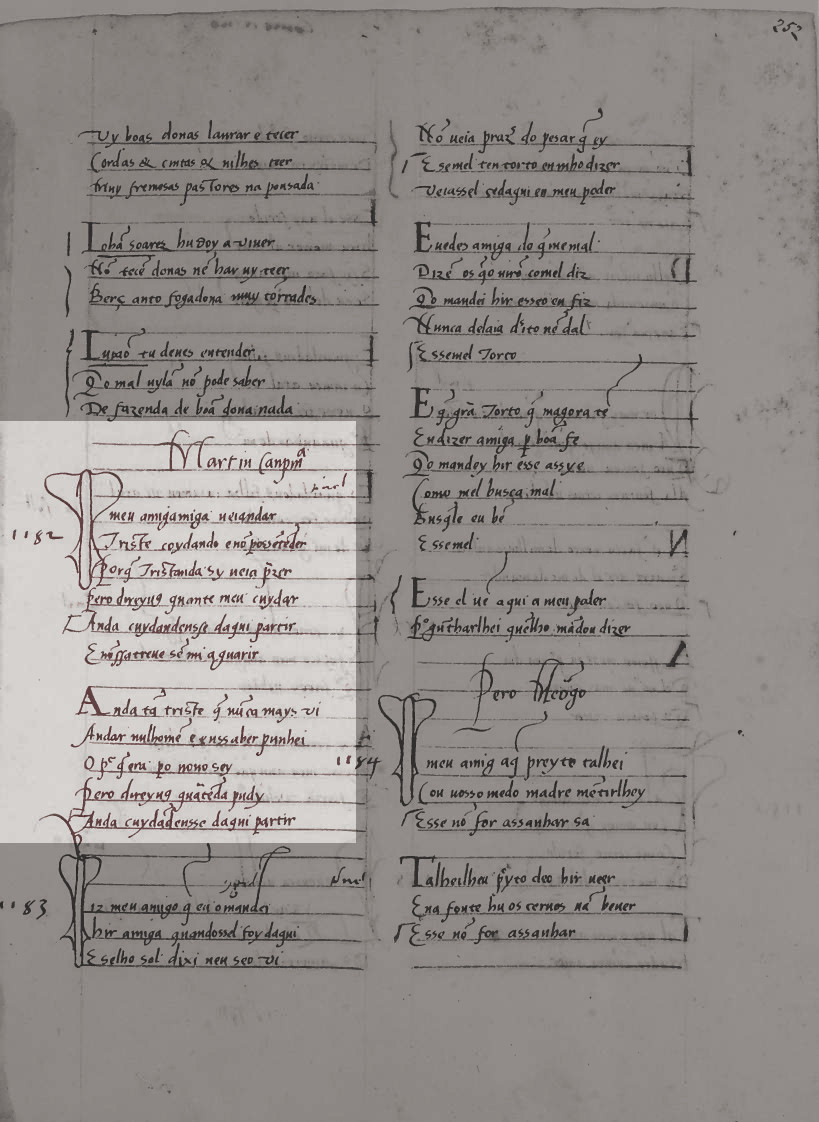 252
Vy boas donas laurar e tecer
Cordas & cintas & nilhes teer
muy fremosas pastores na pousada
Lobã soarez hu doy a viuer
Nõ tecẽ donas nẽ har uy teer
Berç anto fogadona muy torradas
Lupiõ tu deues entender
Qo mal uylã nõ pode saber
De fazenda de boã dona nada
Martin Canpinª
1182
meu amigamiga ueiandar
Triste coydando e nõ posseteder
porq̃ Tristanda sy ueia p̃zer
pero direyuꝯ quante meu cuydar
Anda cuydandensse daqui partir
E nõssatreue sẽ mi aguarir
Anda tã triste q̃ nũca mays vi
Andar nulhomẽ e enssaber punhei
O p̃ q̃ era po nono sey
Pero direyuꝯ quãteda pudy
Anda cuydadẽsse daqui partir
1183
iz meu amigo q̃ eu o mandei
hir amiga quandossel foy daqui
E selho sol dixi nen seo vi
Nõ ueia praz̃ do pesar q̃ ey
E semel ten torto en mho dizer
Veiassel cedaqui en meu poder
Euedes amiga do q̃ me mal
Dizẽ os q̃o uirõ comel diz
Qo mandei hir esseo en fiz
Nunca delaia dito nẽ dal
Essemel Torto
E q̃ grã Torto q̃ magora tẽ
En dizer amiga p̱ boã fe
Qo mandey hir esse assy e
Como mel busca mal
Busq̃le eu bẽ
Essemel
Esse el uẽ aqui a meu poder
P̃gũtharlhei quẽlho mãdou dizer
Pero Meõgo
1184
meu amig aq̃ preyto talhei
Cou uosso medo madre mẽtirlhey
Esse nõ for assanhar sa
Talheilheu p̃yto deo hir ueer
Ena fonte hu os ceruos uã beuer
Esse nõ for assanhar